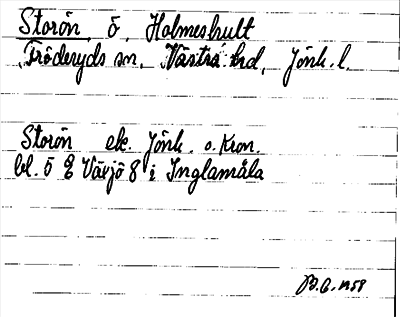 Storön, ö, Holmeshult
Fröderyds sn. Västra hrd, Jönk. l.
Storön ek. Jönk. o. Kron.
bl. 5 E Växjö 8 i Inglamåla